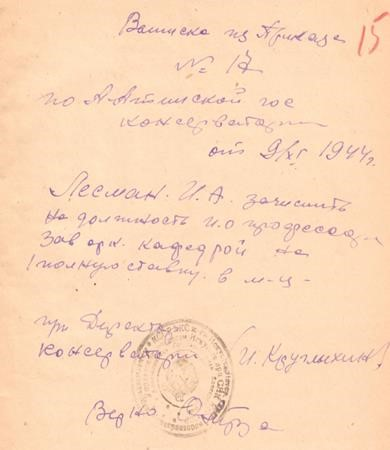 15
Выписка из Приказа
№ 17
по А-Атинской гос
консерватории
от 9/XI 1944г.
Лесман. И.А. зачислить
на должность и.о профессора
Зав орк. кафедрой на
1 полную ставку. в м-ц-
при Директ
консерватории (И. Круглыхин)
Верно